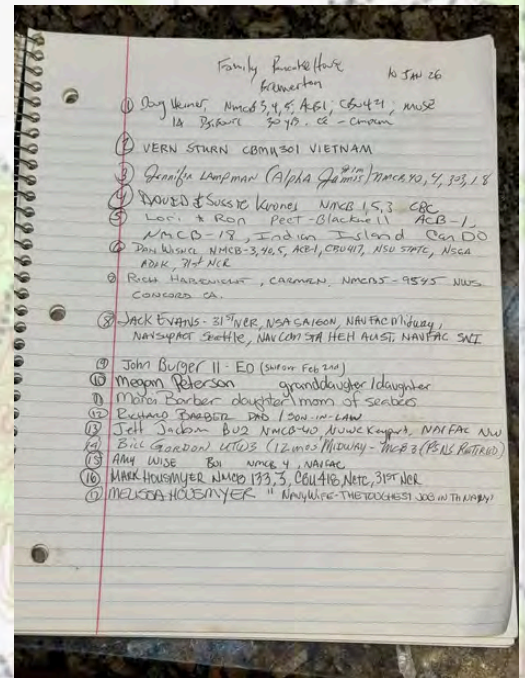 Family Pancake House
Bremerton
10 JAN 26
① Doug Heimer, NMCB 3, 4, 5, ACB1; CBU421; MUSE
14 30 yrs. CE -
② VERN STURN CBMU301 VIETNAM
③ Jennifer Lampman (Alpha Jamis) NMCB 40, 4, 303, 18
④ DAVID & Susie Krones NMCB 1, 5, 3 CBC
⑤ Lori & Ron Peet-Blackwell ACB-1,
NMCB-18, Indian Island Can DO
⑥ DAN WISNER NMCB-3, 40, 5, ACB-1, CBU417, NSU STATC, NSGA
ADAK, 31st NCR
RICH , CARMEN. NMCB5 - 9545 NWS
CONCORD CA.
⑧ JACK EVANS - 31ST NCR, NSA SAIGON, NAVFAC Midway,
NAVSUPACT Seattle, NAVCOMSTA HEH AUST, NAVFAC SNI
⑨ John Burger II - EO (Feb 2nd)
⑩ Megan Peterson granddaughter/daughter
11 Maria Barber daughter/mom of seabees
⑫ RICHARD BARBER DAD / SON-IN-LAW
⑬ Jeff Jackson BU2 NMCB-40, NUWC Keyport, NAVFAC NW
14 BILL GORDON UTW3 (12 mos MIDWAY - MCB3 (PSNS RETIRED)
⑮ AMY WISE BU1 NMCB 4, NAVFAC
⑯ MARK HOUSMYER NMCB 133, 3, CBU418, NCTC, 31ST NCR
⑰ MELISSA HOUSMYER "NAVY WIFE - THE TOUGHEST JOB IN TH NAVY!